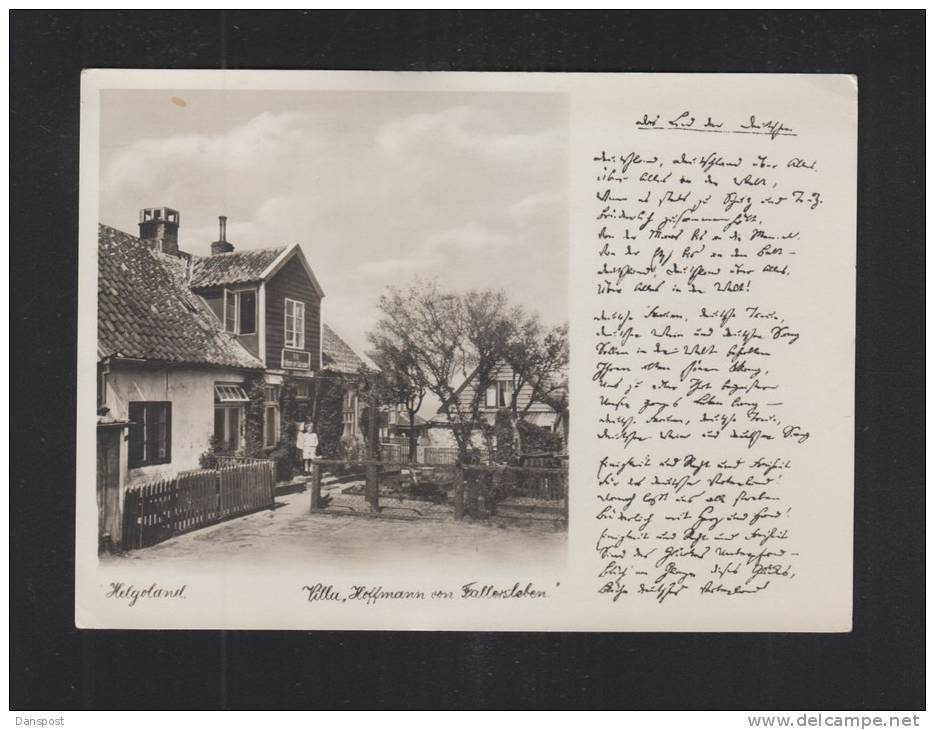 Das Lied der Deutschen.
Deutschland, Deutschland über Alles,
Über Alles in der Welt,
Wenn es stets zu Schutz und Trutz
Brüderlich zusammenhält,
Von der Maas bis an die Memel,
Von der Etsch bis an den Belt –
Deutschland, Deutschland über Alles,
Über Alles in der Welt!
Deutsche Frauen, deutsche Treue,
Deutscher Wein und deutscher Sang
Sollen in der Welt behalten
Ihren alten schönen Klang,
Uns zu edler That begeistern
Unser ganzes Leben lang –
Deutsche Frauen, deutsche Treue,
Deutscher Wein und deutscher Sang
Einigkeit und Recht und Freiheit
Für das deutsche Vaterland!
Danach lasst uns alle streben
Brüderlich mit Herz und Hand!
Einigkeit und Recht und Freiheit
Sind des Glückes Unterpfand –
Blüh im Glanze dieses Glückes,
Blühe deutsches Vaterland
Helgoland.
Villa „Hoffmann von Fallersleben"
Danspost
http://www.delcampe.net